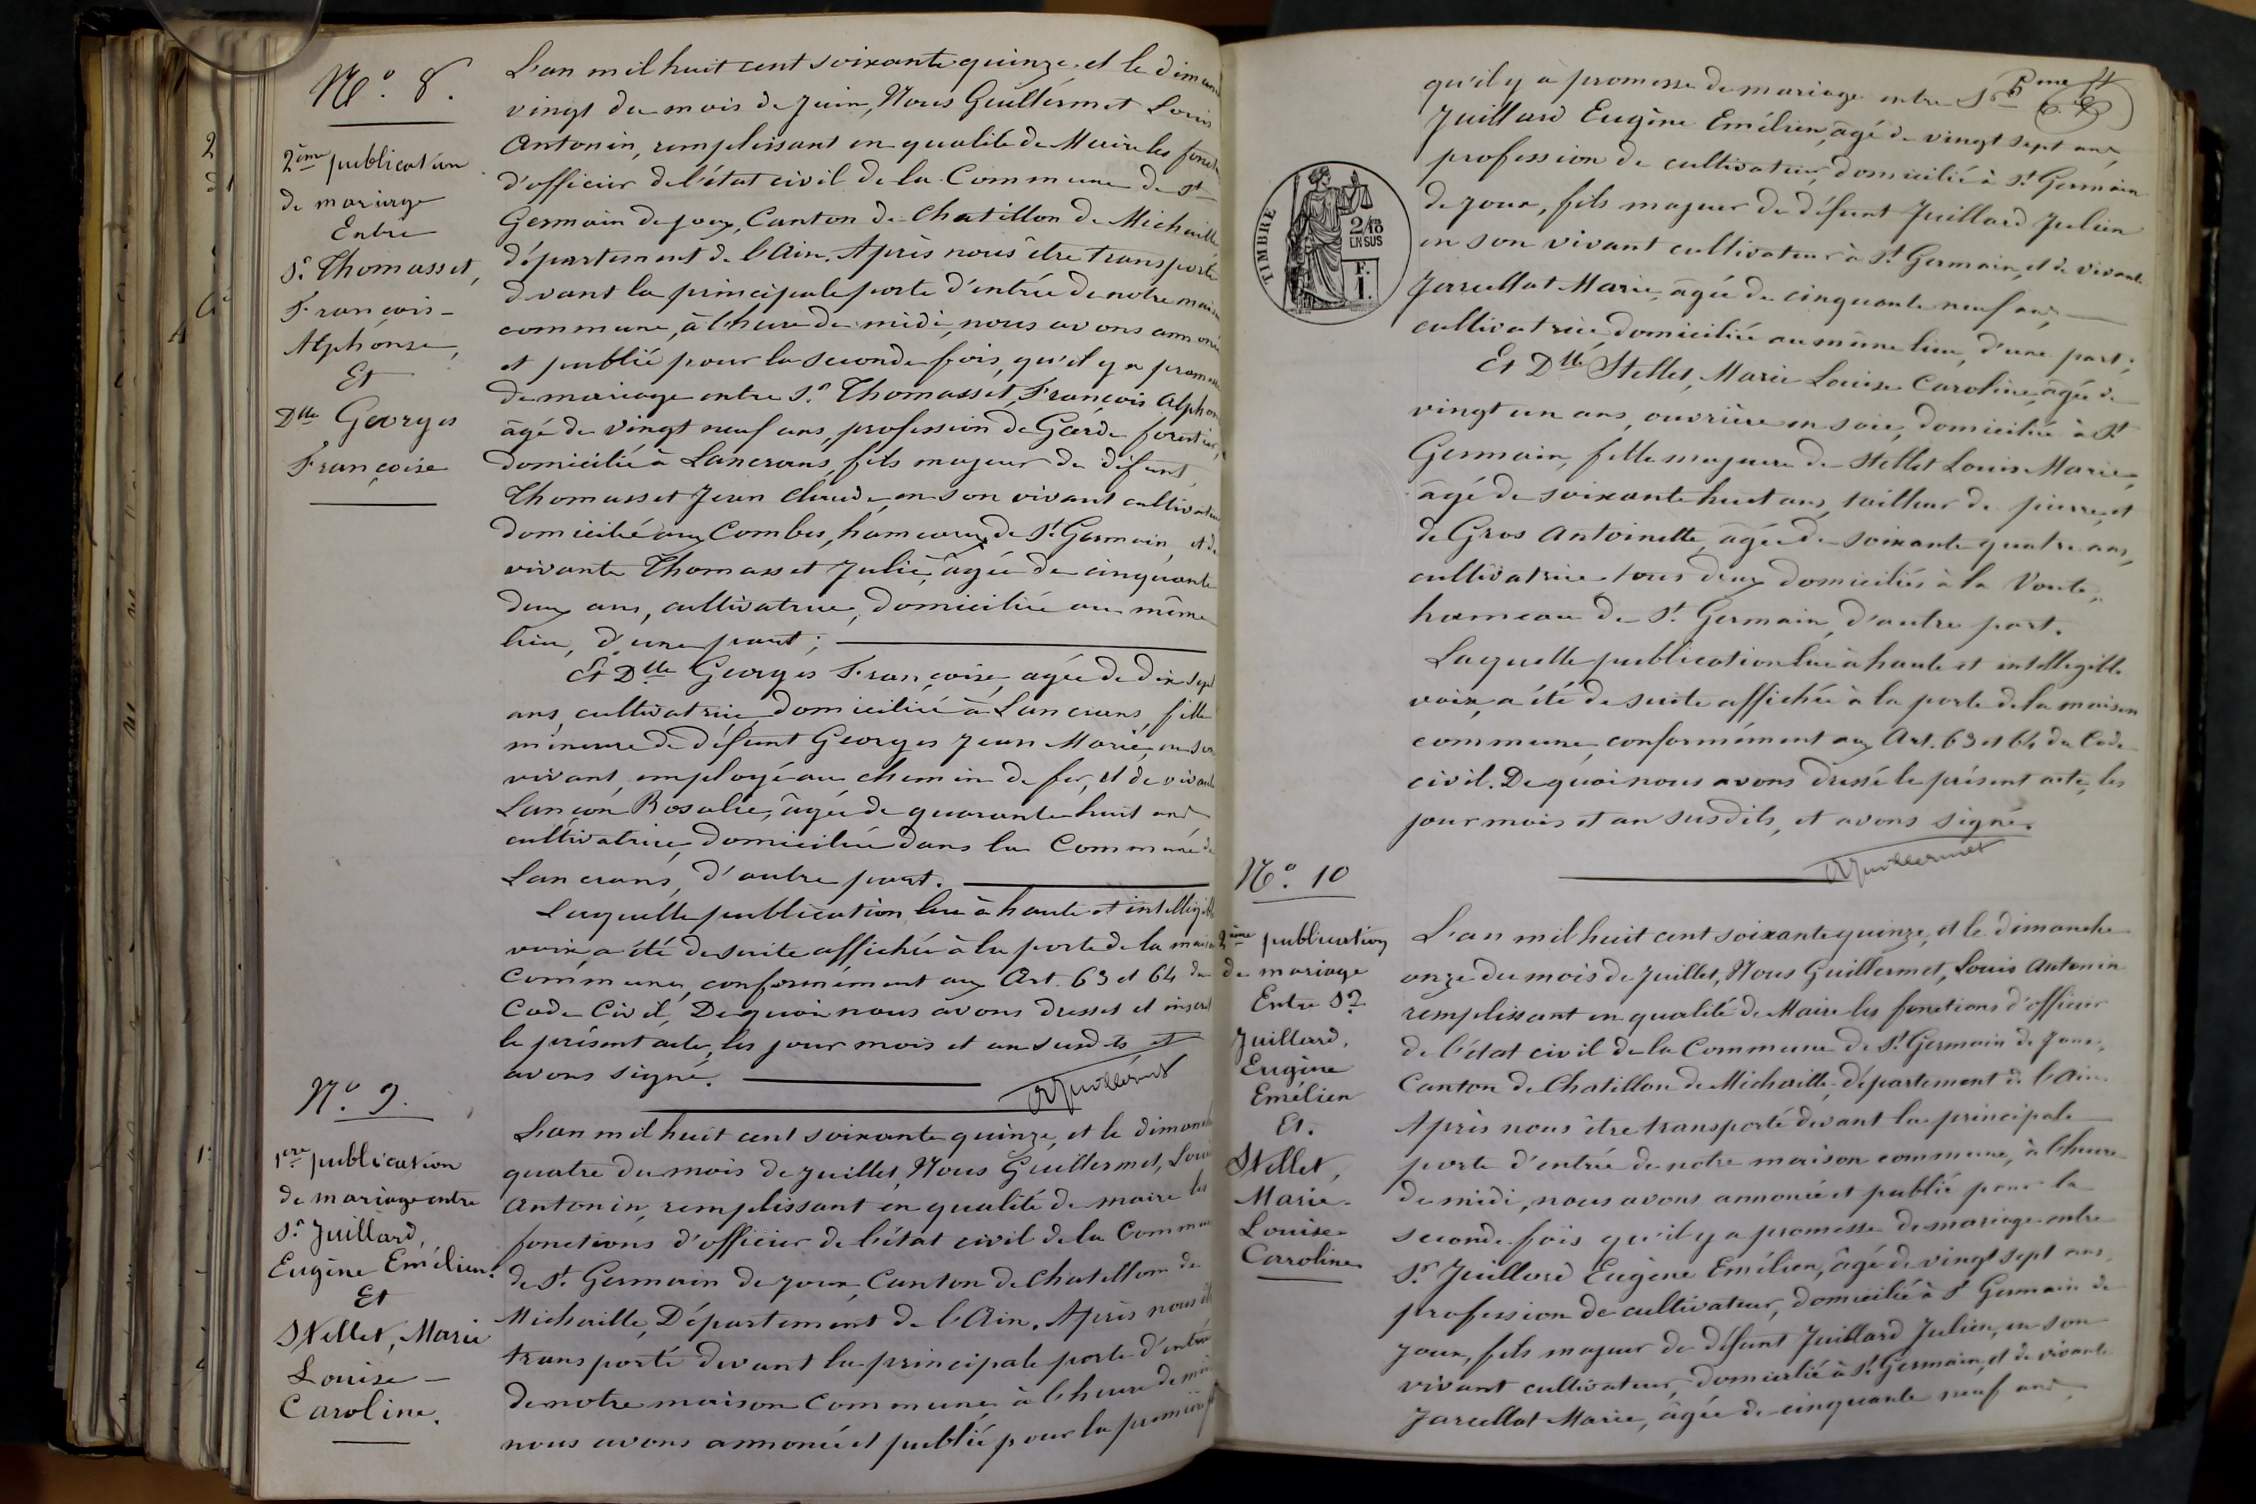 No. 8.
2ème publication
de mariage
Entre
Sr. Thomasset,
François-
Alphonse,
Et
Dlle Georges
Françoise
L'an mil huit cent soixante quinze et le diman
vingt du mois de Juin, Nous Guillermet Louis
Antonin, remplissant en qualité de Maire les foncti
d'officier de l'état civil de la Commune de St
Germain de Joux, Canton de Chatillon de Michaille
département de l'Ain. Après nous être transporté
devant la principale porte d'entrée de notre maison
commune, à l'heure de midi, nous avons annoncé
et publié pour la seconde fois, qu'il y a promesse
de mariage entre Sr. Thomasset, François Alphon
âgé de vingt neuf ans, profession de Garde forestier,
domicilié à Lancrans, fils majeur de défunt
Thomasset Jean Claude, en son vivant cultivateur
domicilié aux Combes, hameau de St. Germain, et de
vivante Thomasset Julie, âgée de cinquante
deux ans, cultivatrice, domiciliée au même
lieu, d'une part;
Et Dlle Georges Françoise, agée de dix sept
ans, cultivatrice, domiciliée à Lancrans, fille
mineure de défunt Georges Jean Marie, en son
vivant, employé au chemin de fer, et de vivante
Lançon Rosalie, âgée de quarante huit ans
cultivatrice, domiciliée dans la Commune de
Lancrans, d'autre part.
Laquelle publication, lue à haute et intelligible
voix, a été de suite affichée à la porte de la maison
Commune, conformément aux Art. 63 et 64 du
Code Civil, De quoi nous avons dressé et inscrit
le présent acte, les jour mois et an susdits et
avons signé.
AGuillermet
No. 9.
1ere publication
de mariage entre
Sr. Juillard,
Eugène Emélien.
Et
Stellet, Marie
Louise-
Caroline.
L'an mil huit cent soixante quinze, et le dimanche
quatre du mois de Juillet, Nous Guillermet, Louis
Antonin, remplissant en qualité de maire les
fonctions d'officier de l'état civil de la Commune
de St. Germain de Joux, Canton de Chatillon de
Michaille, Département de l'Ain. Après nous êt
transporté devant la principale porte d'entrée
de notre maison Commune, à l'heure de midi
nous avons annoncé et publié pour la première
5me ft
qu'il y a promesse de mariage entre Sr
Juillard Eugène Emélien, âgé de vingt sept ans,
profession de cultivateur, domicilié à St. Germain
de Joux, fils majeur de défunt Juillard Julien
en son vivant cultivateur à St. Germain, et de vivante
Jarcellat Marie, âgée de cinquante neuf ans,
cultivatrice, domiciliée au même lieu, d'une part;
Et Dlle Stellet, Marie Louise Caroline, agée de
vingt un ans, ouvrière en soie, domiciliée à St
Germain, fille majeure de Stellet Louis Marie,
âgé de soixante huit ans, tailleur de pierre, et
de Gros Antoinette, agée de soixante quatre ans,
cultivatrice tous deux domiciliés à la Voute,
hameau de St. Germain, d'autre part.
Laquelle publication lue à haute et intelligible
voix, a été de suite affichée à la porte de la maison
commune, conformément aux Art. 63 et 64 du Code
civil. De quoi nous avons dressé le présent acte, les
jour mois et an susdits, et avons signé.
AGuillermet
TIMBRE
2/10
EN SUS
F.
1.
No. 10
2ème publication
de mariage
Entre Sr.
Juillard,
Eugène
Emélien
Et.
Stellet,
Marie-
Louise-
Caroline
L'an mil huit cent soixante quinze, et le dimanche
onze du mois de Juillet, Nous Guillermet, Louis Antonin
remplissant en qualité de Maire les fonctions d'officier
de l'état civil de la Commune de St. Germain de Joux,
Canton de Chatillon de Michaille, département de l'Ain.
Après nous être transporté devant la principale
porte d'entrée de notre maison commune, à l'heure
de midi, nous avons annoncé et publié pour la
seconde fois qu'il y a promesse de mariage entre
Sr. Juillard Eugène Emélien, âgé de vingt sept ans,
profession de cultivateur, domicilié à St Germain de
Joux, fils majeur de défunt Juillard Julien, en son
vivant cultivateur, domicilié à St. Germain, et de vivante
Jarcellat Marie, âgée de cinquante neuf ans,